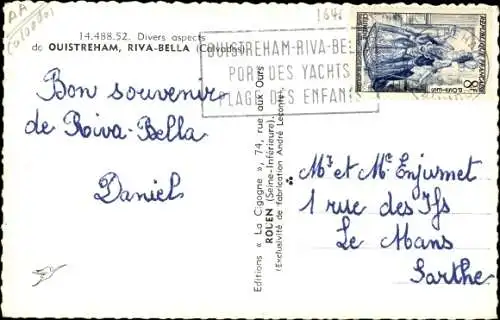 AA
Calvados
14.488.52. Divers aspects
de OUISTREHAM, RIVA-BELLA (Calvados)
Bon souvenir
de Riva-Bella
Daniel
Editions « La Cigogne », 74, rue aux Ours
ROUEN (Seine-Inférieure).
(Exclusivité de fabrication André Leconte).
1641
OUISTREHAM-RIVA-BEL
PORT DES YACHTS
PLAGE DES ENFANTS
REPUBLIQUE FRANÇAISE
8F
Mr et Me Enjumet
1 rue des Ifs
Le Mans
Sarthe